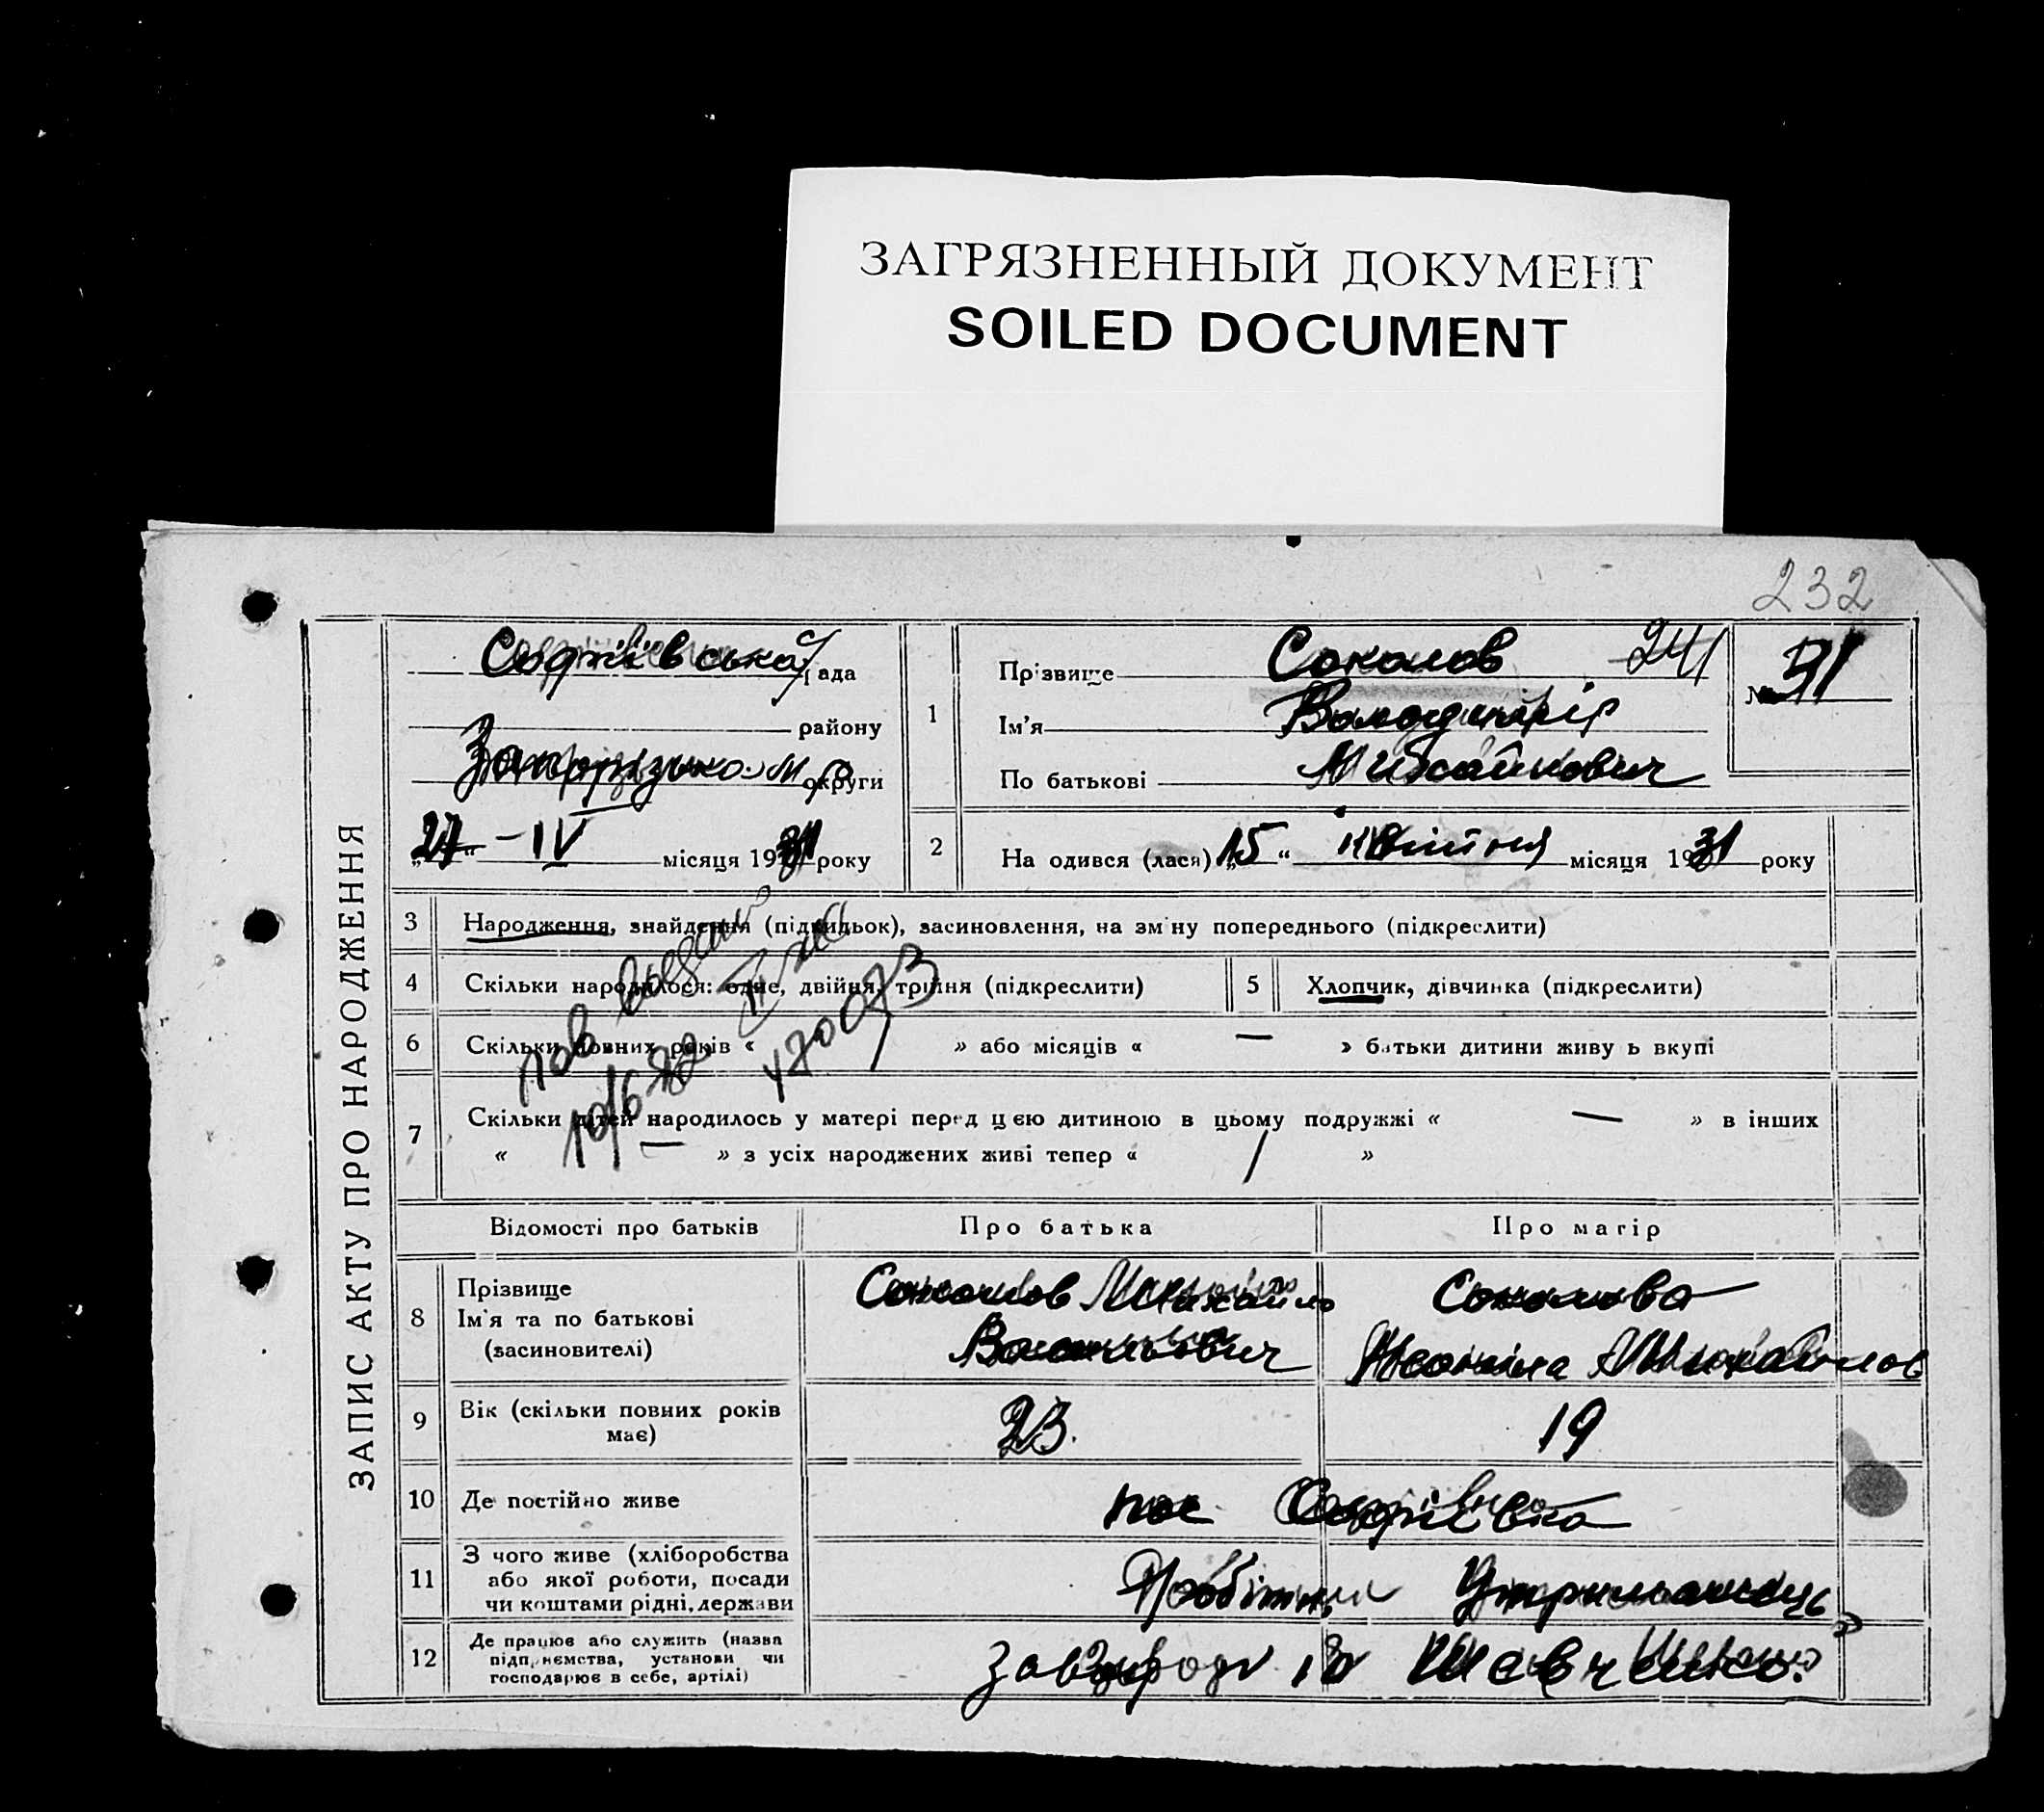 ЗАГРЯЗНЕННЫЙ ДОКУМЕНТ
SOILED DOCUMENT
232
ЗАПИС АКТУ ПРО НАРОДЖЕННЯ
Софіївська с/рада
району
округи
„27“ – IV місяця 1931 року
1
Прізвище Соколов 241
Ім'я Володимір
По батькові Михайлович
№ 51
2
На одився (лася) „15“ квітня місяця 1931 року
3 Народження, знайдення (підкидьок), засиновлення, на зм ну попереднього (підкреслити)
4 Скільки народилося: одне, двійня, трійня (підкреслити)
5 Хлопчик, дівчинка (підкреслити)
6 Скільки повних років « 1 » або місяців « — » батьки дитини живу ь вкупі
7 Скільки дітей народилось у матері перед цією дитиною в цьому подружжі « — » в інших
« — » з усіх народжених живі тепер « 1 »
пов выдано
10/6 72
УЖО 073
Відомості про батьків Про батька Про матір
8 Прізвище
Ім'я та по батькові
(засиновителі)
Соколов Михайло
Васильович
Соколова
Михайлов
9 Вік (скільки повних років
має)
23.
19
10 Де постійно живе
пос Софіївка
11 З чого живе (хліборобства
або якої роботи, посади
чи коштами рідні, держави
Робітник
Утриманець
12 Де працює або служить (назва
підприємства, установи чи
господарює в себе, артілі)
Шевченко.